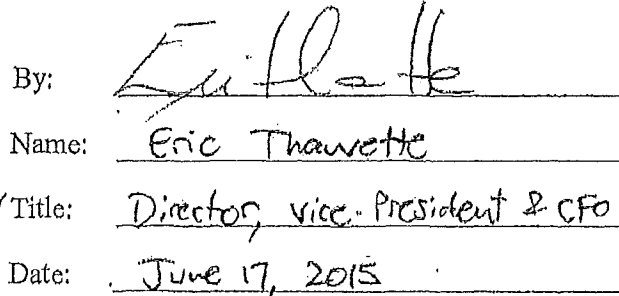 By:
Name: Eric Thauvette
Title: Director, Vice-President & CFO
Date: June 17, 2015